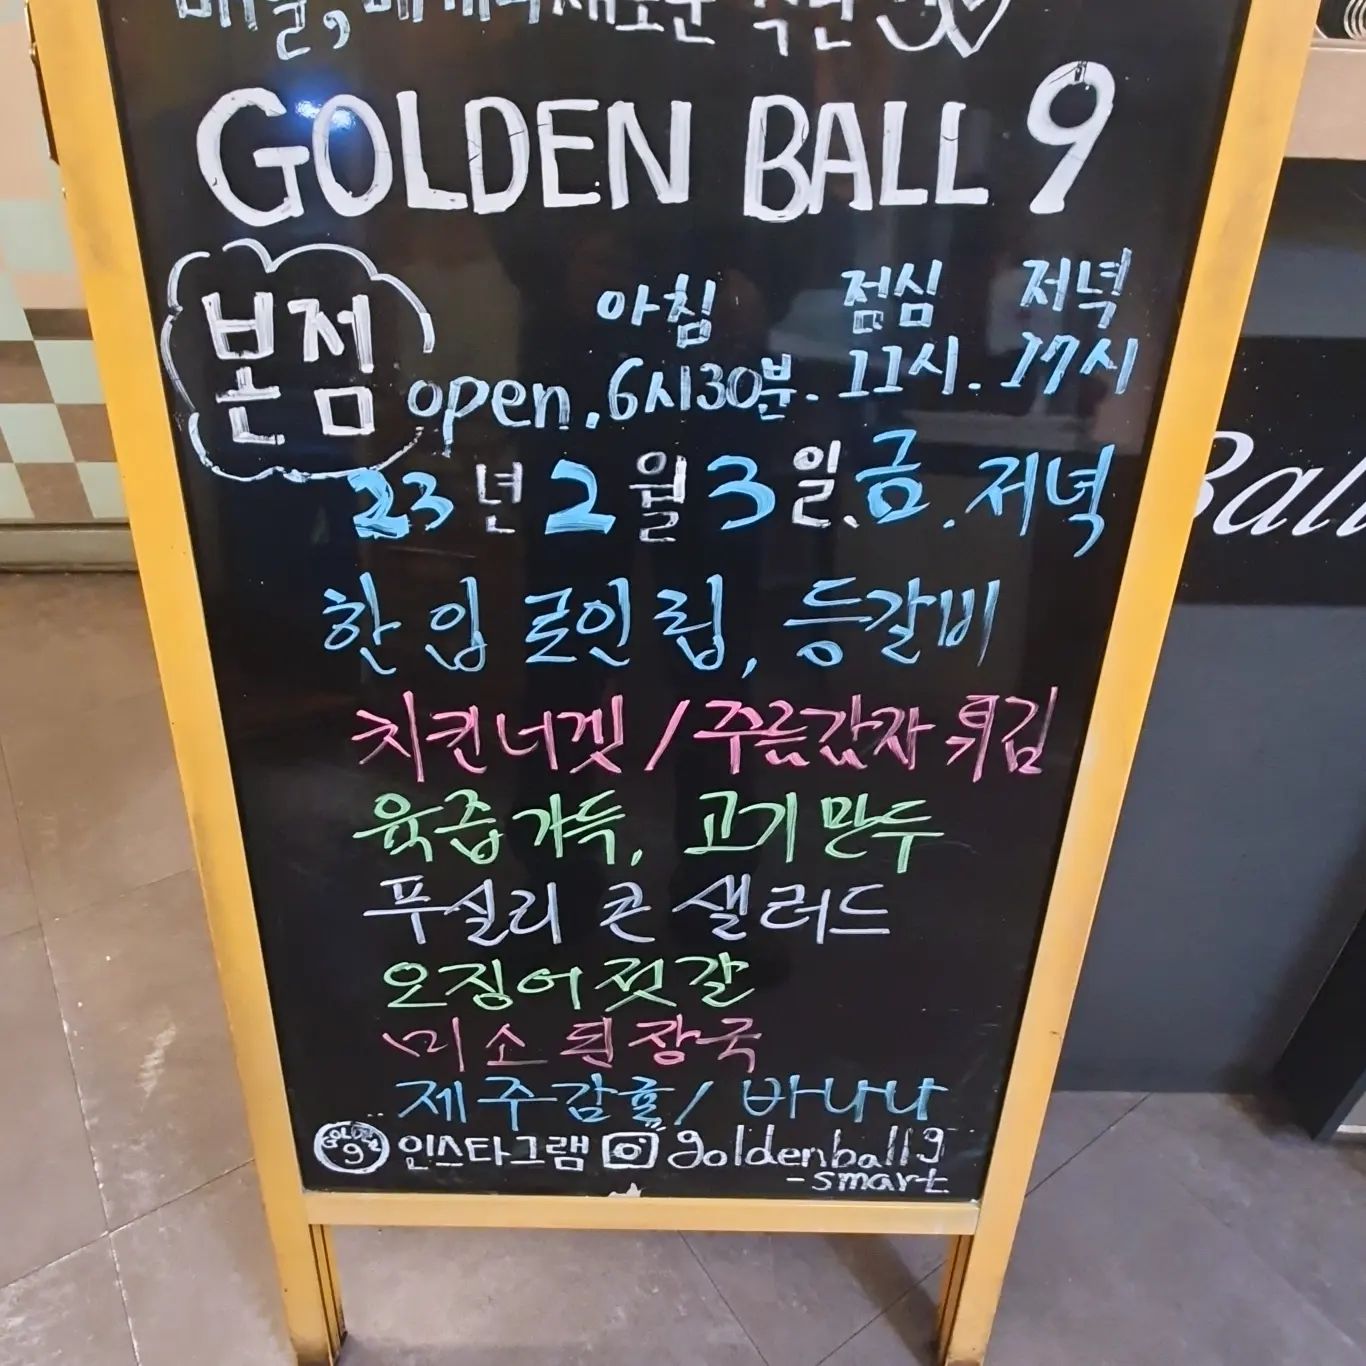 매일, 매끼니 새로운 식단
GOLDEN BALL 9
본점
아침 점심 저녁
open. 6시30분. 11시. 17시
23년 2월 3일. 금. 저녁
한입 로인립, 등갈비
치킨너겟 / 주름감자 튀김
육즙가득, 고기만두
푸실리 콘 샐러드
오징어젓갈
미소 된장국
제주감귤 / 바나나
GOLDEN 9 인스타그램 goldenball9
-smart
Ball